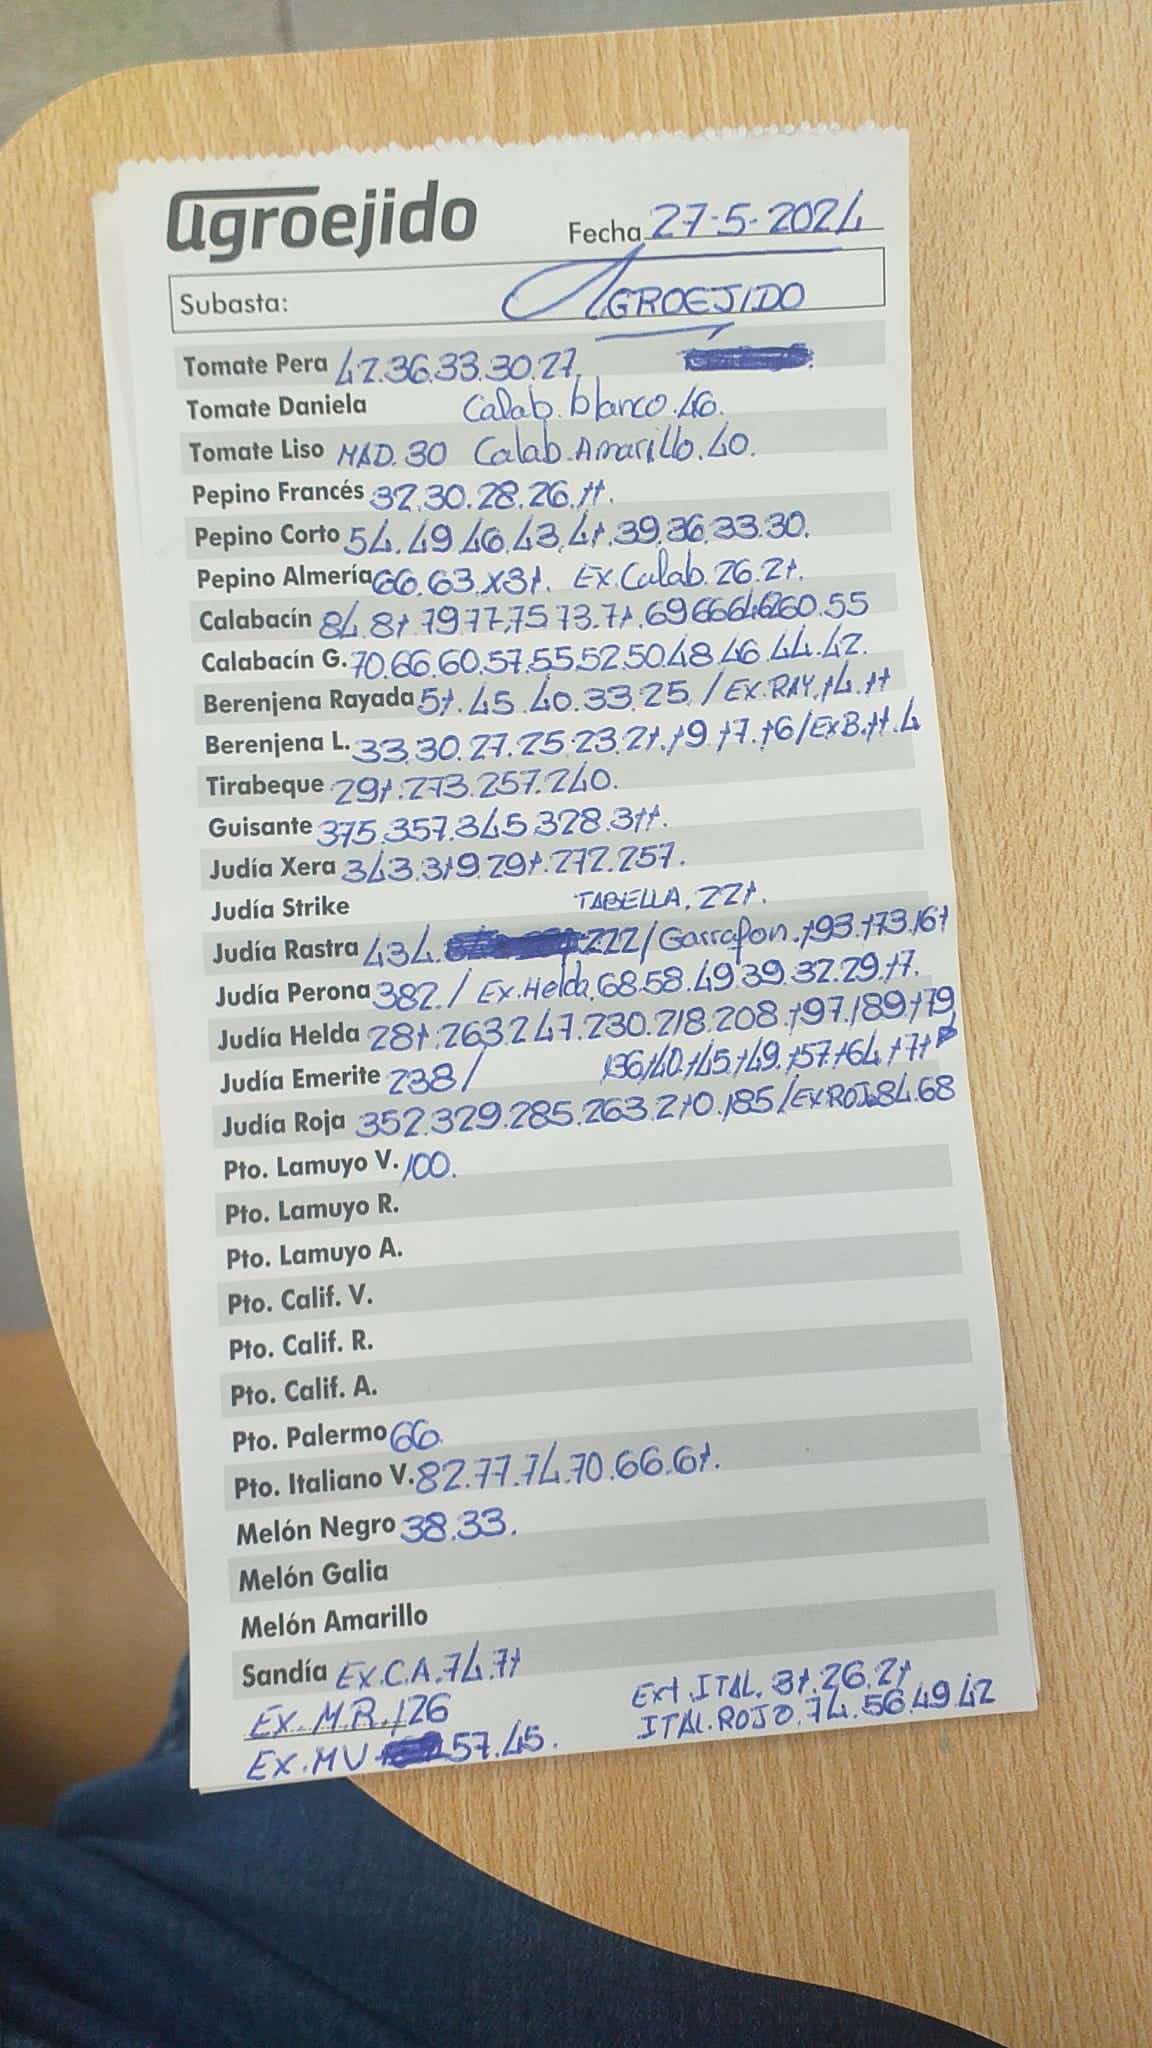 agroejido
Fecha 27-5-2024
Subasta: AGROEJIDO
Tomate Pera 42.36.33.30.27.
Tomate Daniela Calab. blanco.46.
Tomate Liso MAD. 30 Calab. Amarillo.40.
Pepino Francés 32.30.28.26.11.
Pepino Corto 54.49.46.43.41.39.36.33.30.
Pepino Almería 66.63.x31. Ex.Calab.26.21.
Calabacín 84.81.79.77.75.73.71.69.66.64.62.60.55
Calabacín G. 70.66.60.57.55.52.50.48.46.44.42.
Berenjena Rayada 51.45.40.33.25./EX.RAY.14.11
Berenjena L. 33.30.27.25.23.21.19.17.16/EXB.11.4
Tirabeque 291.273.257.240.
Guisante 375.357.345.328.311.
Judía Xera 343.319.291.272.257.
Judía Strike TABELLA.221.
Judía Rastra 434. 222/Garrafon.193.173.161
Judía Perona 382./ Ex.Helda.68.58.49.39.32.29.17.
Judía Helda 281.263.247.230.218.208.197.189.179
Judía Emerite 238/ 136.140.145.149.157.164.171
Judía Roja 352.329.285.263.210.185/EXROJ.84.68
Pto. Lamuyo V. 100.
Pto. Lamuyo R.
Pto. Lamuyo A.
Pto. Calif. V.
Pto. Calif. R.
Pto. Calif. A.
Pto. Palermo 66
Pto. Italiano V. 82.77.74.70.66.61.
Melón Negro 38.33.
Melón Galia
Melón Amarillo
Sandía Ex.C.A.74.71
Ex.M.R.126
Ex.MV 57.45.
Ext.ITAL.31.26.21
ITAL.ROJO.74.56.49.42